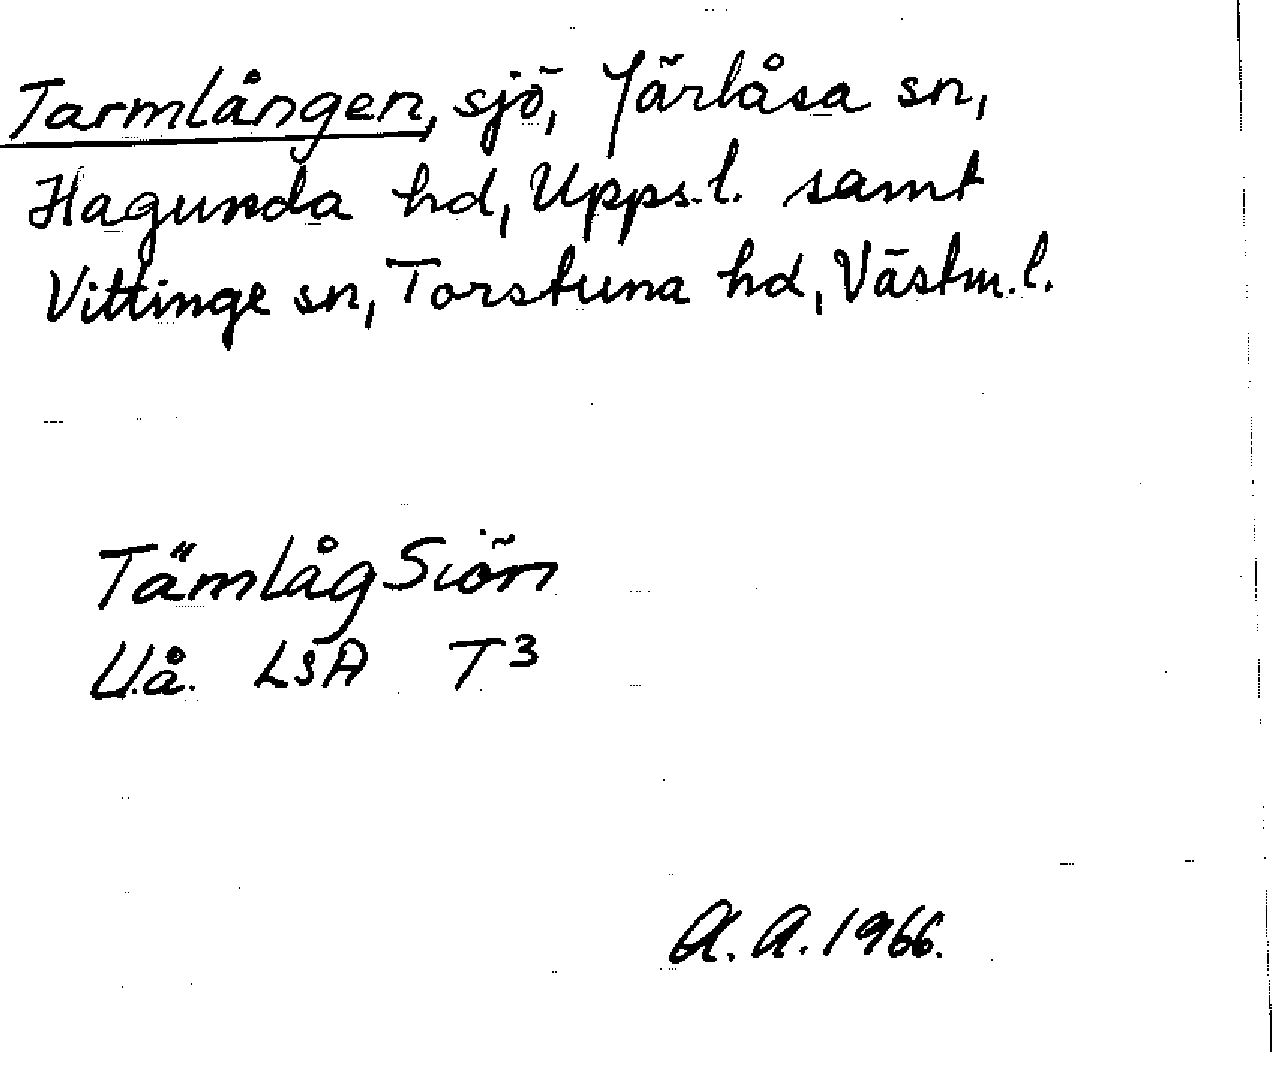 Tarmlången, sjö, Järlåsa sn,
Hagunda hd, Upps.l. samt
Vittinge sn, Torstuna hd, Västm.l.
TämlågSiön
U.å. LSA T3
A.A.1966.